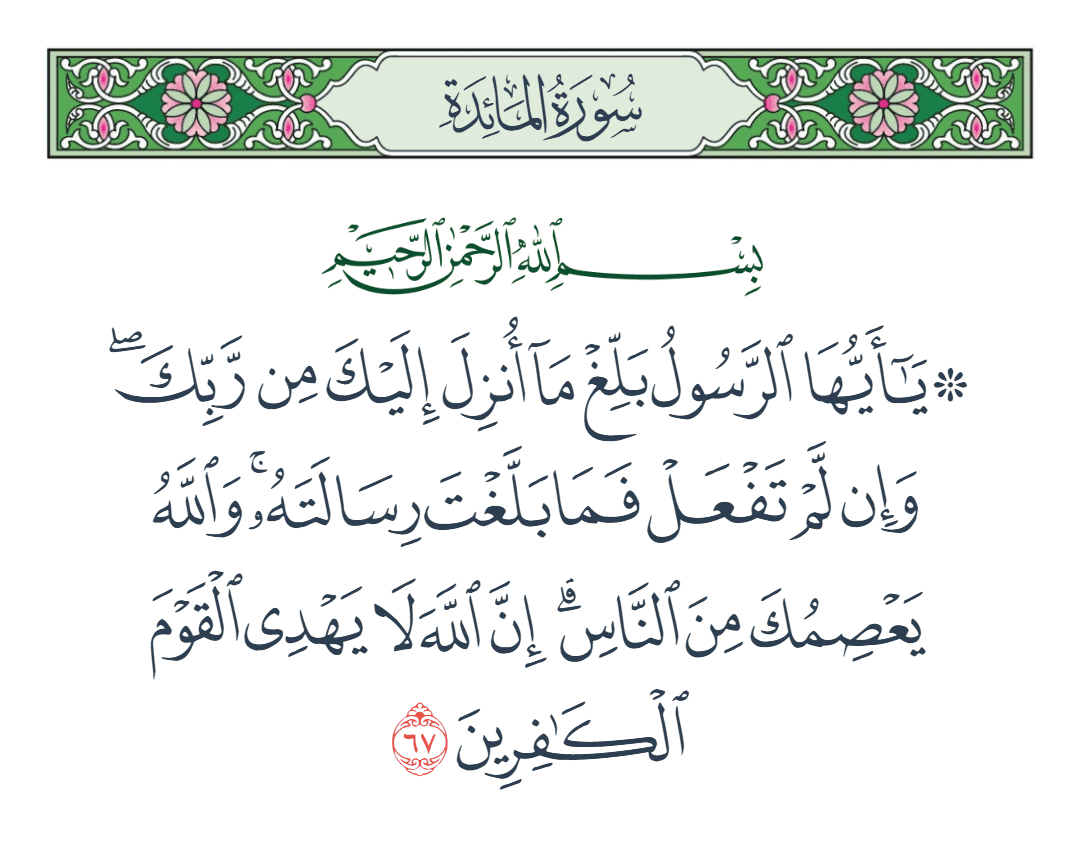 سُورَةُ المَائِدَةِ
بِسْمِ ٱللَّهِ ٱلرَّحْمَٰنِ ٱلرَّحِيمِ
۞ يَـٰٓأَيُّهَا ٱلرَّسُولُ بَلِّغْ مَآ أُنزِلَ إِلَيْكَ مِن رَّبِّكَ ۖ
وَإِن لَّمْ تَفْعَلْ فَمَا بَلَّغْتَ رِسَالَتَهُۥ ۚ وَٱللَّهُ
يَعْصِمُكَ مِنَ ٱلنَّاسِ ۗ إِنَّ ٱللَّهَ لَا يَهْدِى ٱلْقَوْمَ
ٱلْكَـٰفِرِينَ ٦٧